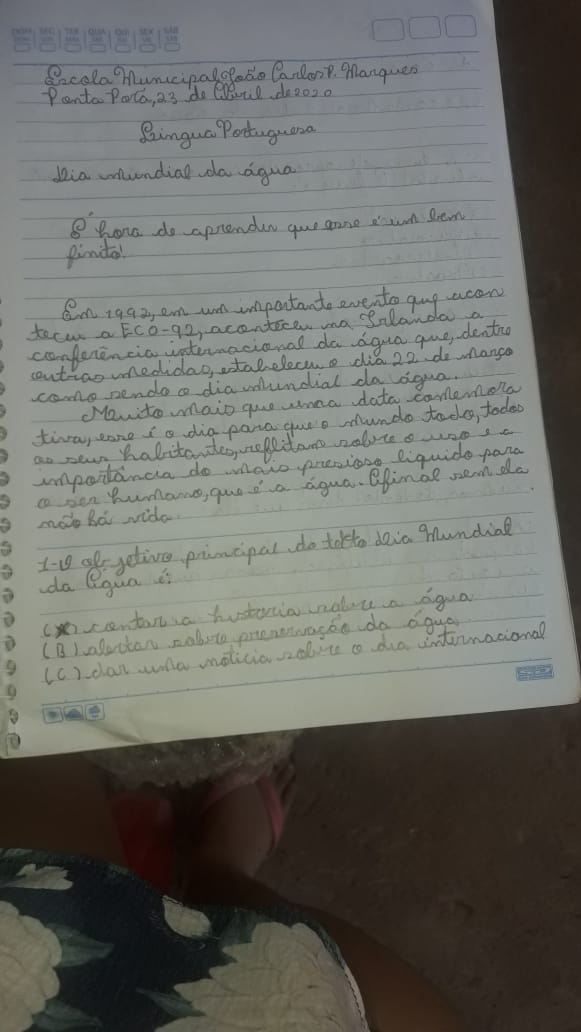 DOM SEG TER QUA QUI SEX SÁB
Escola Municipal João Carlos P. Marques
Ponta Porã, 23 de Abril de 2020
Língua Portuguesa
Dia mundial da água
É hora de aprender que esse é um bem
finito!
Em 1992, em um importante evento que acon
teceu a ECO-92, aconteceu na Irlanda a
conferência internacional da água que, dentre
outras medidas, estabeleceu o dia 22 de março
como sendo o dia mundial da água.
Muito mais que uma data comemora
tiva, esse é o dia para que o mundo todo, todos
os seus habitantes, reflitam sobre o uso e a
importância do mais presioso liquido para
o ser humano, que é a água. Afinal sem ela
não há vida.
1-O objetivo principal do texto Dia Mundial
da Água é:
(X) contar a historia sobre a água
(B) alertar sobre preservação da água,
(C) dar uma notícia sobre o dia internacional